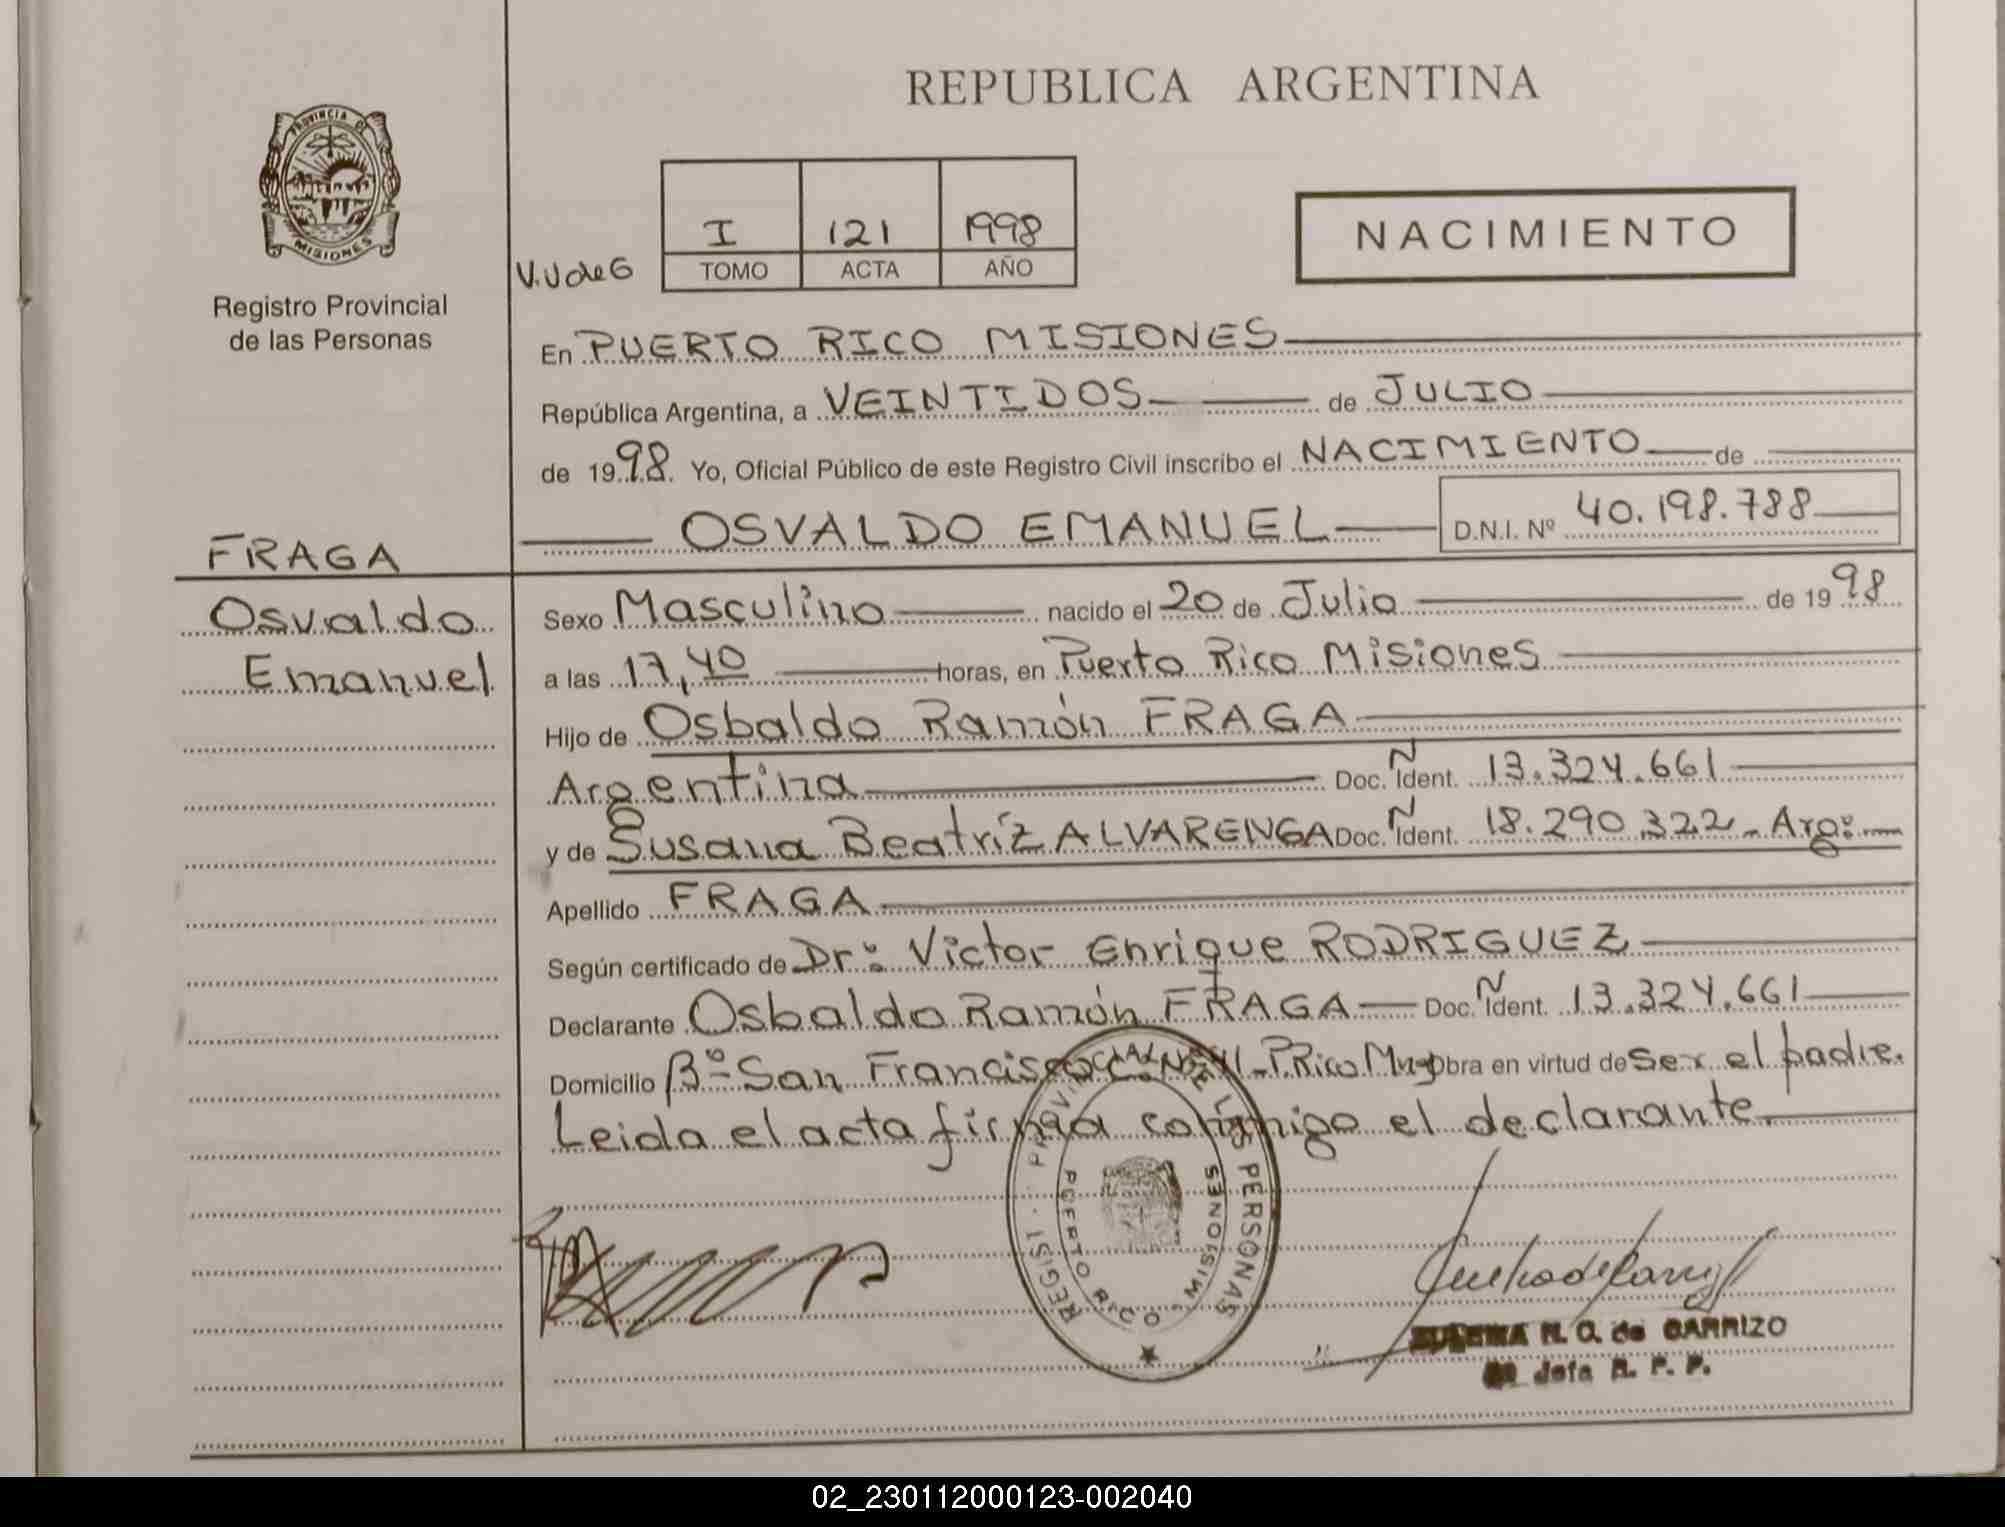 REPUBLICA ARGENTINA
PROVINCIA DE
MISIONES
Registro Provincial
de las Personas
V.V de G
I 121 1998
TOMO ACTA AÑO
NACIMIENTO
En PUERTO RICO MISIONES
República Argentina, a VEINTIDOS de JULIO
de 1998. Yo, Oficial Público de este Registro Civil inscribo el NACIMIENTO de
OSVALDO EMANUEL D.N.I. Nº 40.198.788
FRAGA
Osvaldo
Emanuel
Sexo Masculino nacido el 20 de Julio de 1998
a las 17,40 horas, en Puerto Rico Misiones
Hijo de Osbaldo Ramón FRAGA
Argentina Doc. Ident. Ñ 13.324.661
y de Susana Beatríz ALVARENGA Doc. Ident. Ñ 18.290.322 - Arg:
Apellido FRAGA
Según certificado de Dr: Victor Enrique RODRIGUEZ
Declarante Osbaldo Ramón FRAGA Doc. Ident. Ñ 13.324.661
Domicilio Bº San Francisco P.Rico Obra en virtud de Ser el padre.
Leida el acta firma conmigo el declarante.
PERSONAS
PUERTO RICO MISIONES
N. O. de CARRIZO
Jefa R. P. P.
02_230112000123-002040